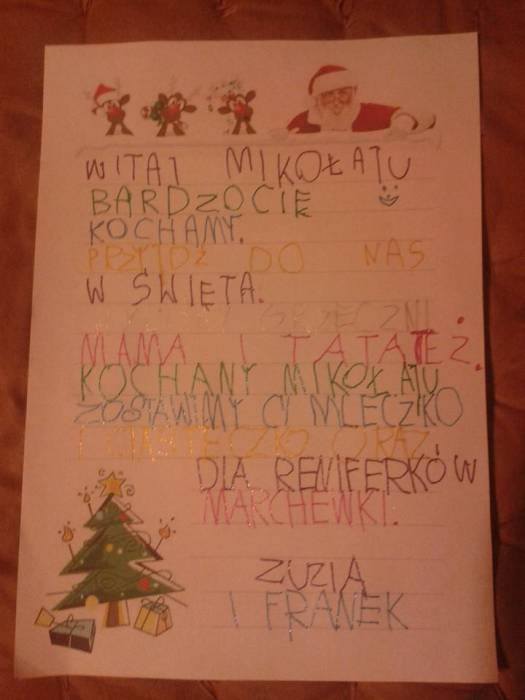 WITAJ MIKOŁAJU
BARDZOCIĘ
KOCHAMY.
PRZYJDŹ DO NAS
W ŚWIĘTA.
GRZECZNI
MAMA I TATATEŻ.
KOCHANY MIKOŁAJU
ZOSTAWIMY CI MLECZKO
I CIASTECZKO ORAZ
DLA RENIFERKÓW
MARCHEWKI.
ZUZIA
I FRANEK